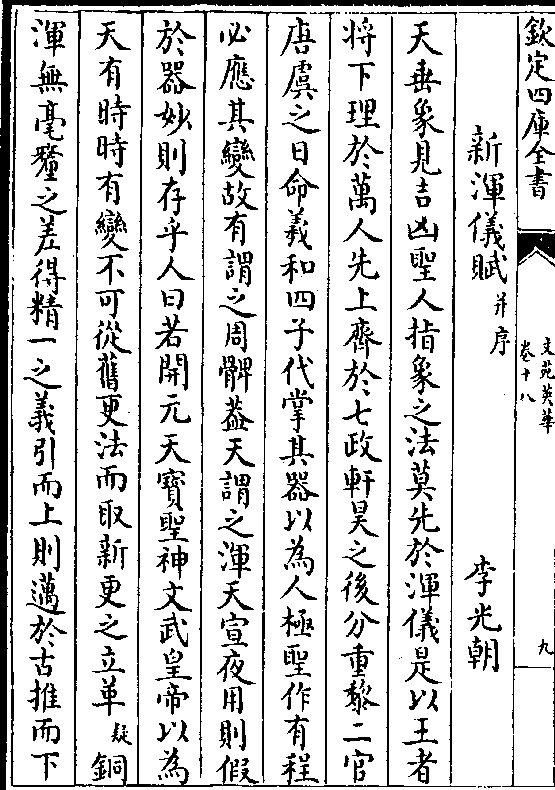 欽定四庫全書
文苑英華
卷十八
九
新渾儀賦并序
李光朝
天垂象見吉凶聖人指象之法莫先於渾儀是以王者
將下理於萬人先上齊於七政軒昊之後分重黎二官
唐虞之日命羲和四子代掌其器以為人極聖作有程
必應其變故有謂之周髀葢天謂之渾天宣夜用則假
於器妙則存乎人曰若開元天寶聖神文武皇帝以為
天有時時有變不可從舊更法而取新更之立单疑銅
渾無毫釐之差得精一之義引而上則邁於古推而下